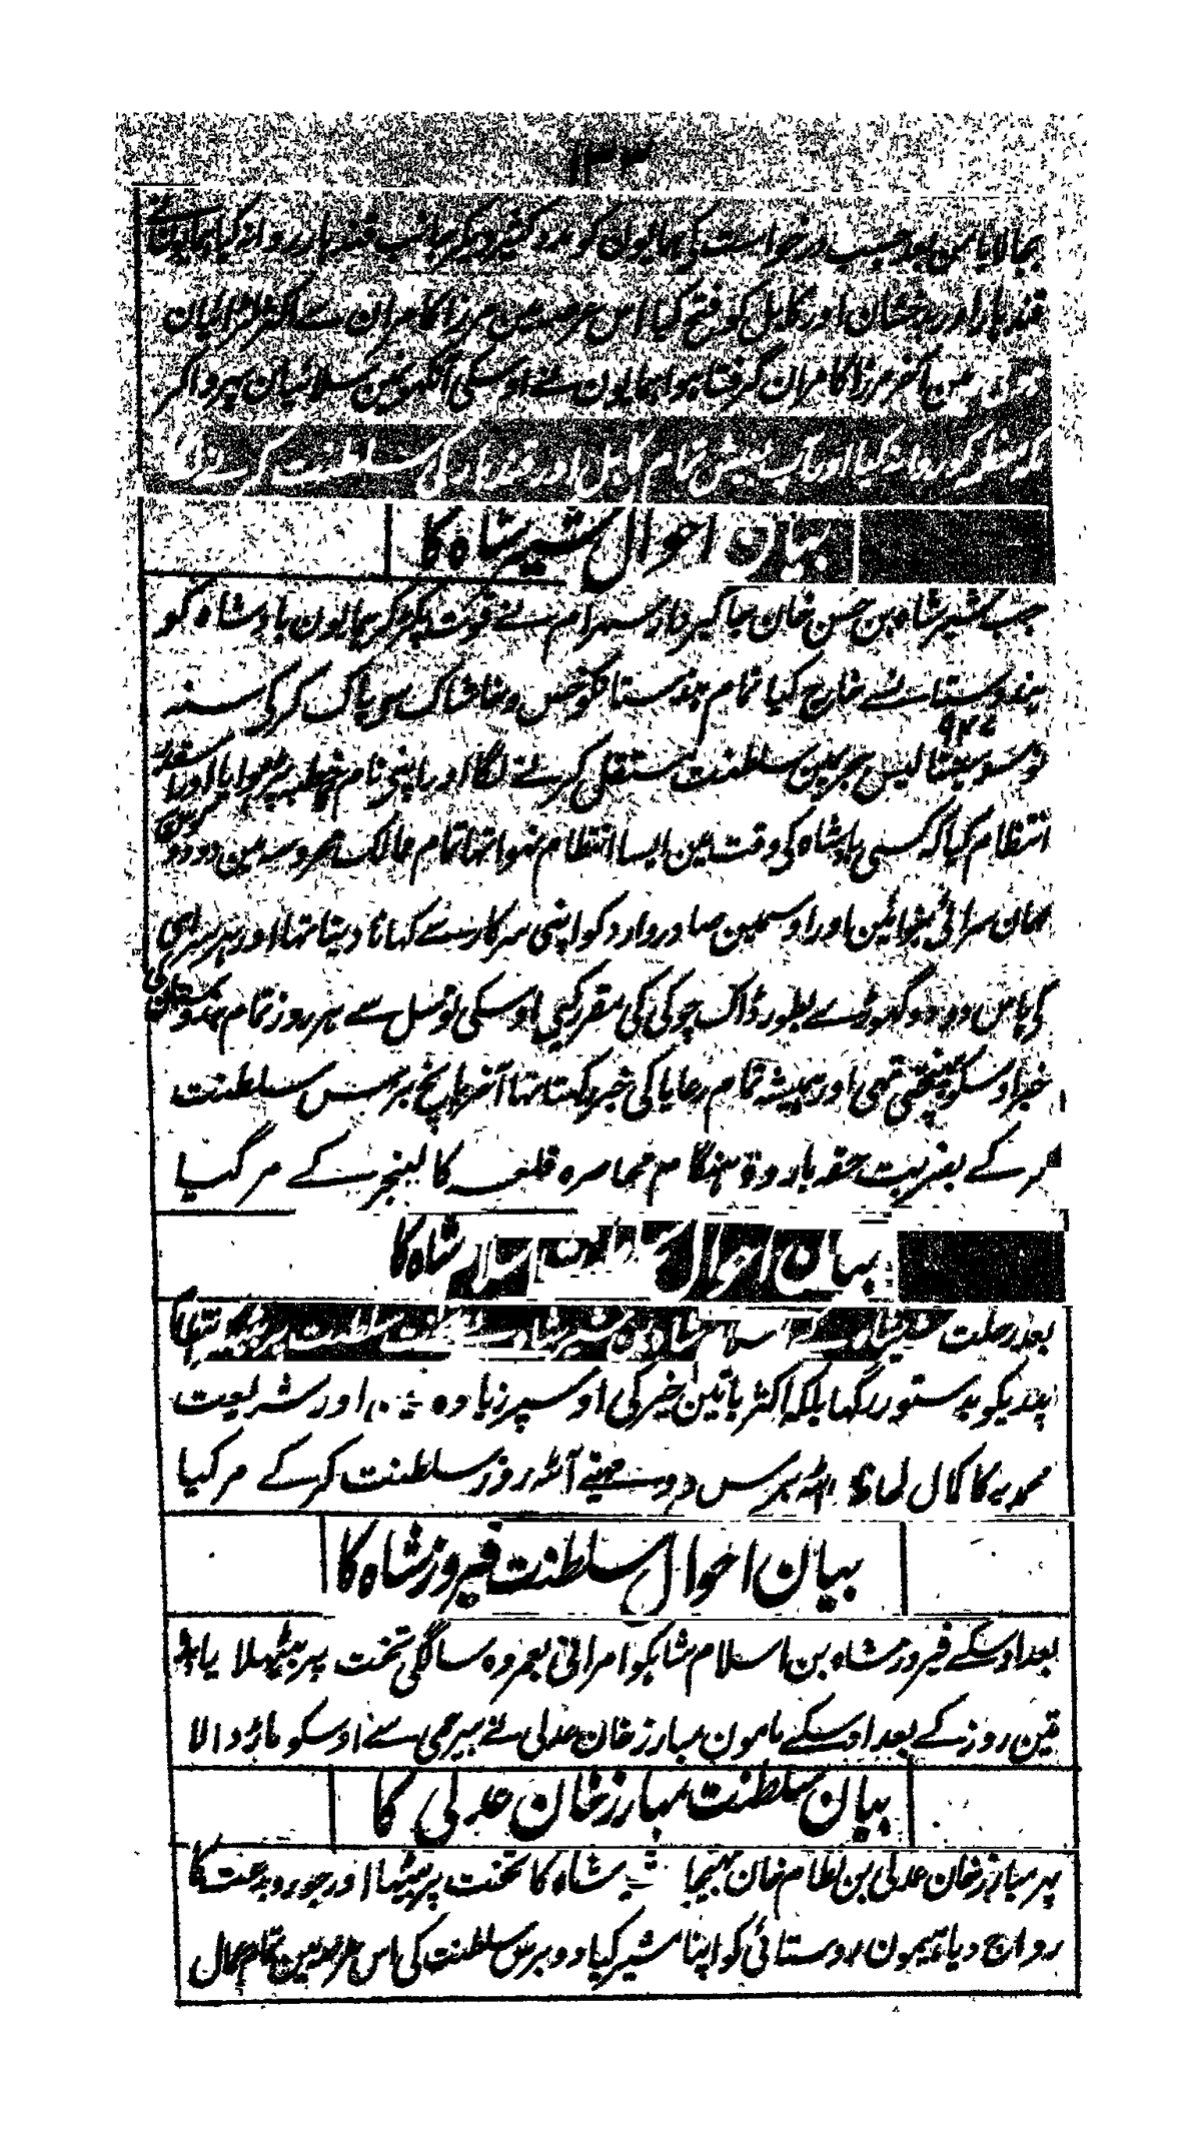 ۱۳۳
بجا لایا من بعد حسب درخواست ہمایون کو مدد کثیر دیکر جانب قندہار روانہ کیا ہمایون نے
قندہار اور بدخشان اور کابل کو فتح کیا اس عرصہ مین مرزا کامران سے اکثر لڑائیان
مین آخر مرزا کامران گرفتار ہوا ہمایون نے اوسکی آنکھونمین سلائیان پہرواکر
روانہ کیا اور آپ تمام کابل اور قندہار کی سلطنت کرنے لگا
بیان احوال شیر شاہ کا
جب شیر شاہ بن حسن خان جاگیر دار سہسرام نے قوت پکڑ کر ہمایون بادشاہ کو
ہندوستانسے خارج کیا تمام ہندوستانکو خس و خاشاک سی پاک کر کی سنہ
۹۴۷
نو سو سینتالیس ہجریمین سلطنت مستقل کرنے لگا اور اپنی نام خطبہ پڑہوایا اور اسقدر
انتظام کیا کہ کسی بادشاہ کی وقت مین ایسا انتظام نہوا تہا تمام ممالک محروسہ مین دو دو کوس پر
مہان سرائی بنوائین اور اوسمین صادر وارد کو اپنی سرکار سے کہانا دیتا تہا اور ہر سرای
کی پاس دو دو گہوڑے بطور ڈاک چوکی کی مقرر کیی اوسکی توسل سے ہر روز تمام ہندوستان کی
خبر اوسکو پہنچتی تہی اور ہمیشہ تمام رعایا کی خبر رکہتا تہا آخر پانچ برس سلطنت
کر کے بضربت حقہ باروت ہنگام محاصرہ قلعہ کالینجر کے مر گیا
بیان احوال اسلام شاہ کا
بعد رحلت
پدریکو بدستور رکہا بلکہ اکثر باتین خیر کی اوسپر زیادہ کین اور شریعت
محمدیہ کا کمال لحاظ آٹھ برس دو مہینے آٹھ روز سلطنت کر کے مر گیا
بیان احوال سلطنت فیروز شاہ کا
بعد اوسکے فیروز شاہ بن اسلام شاہکو امرائی بعمر دہ سالگی تخت پر بیٹھلا یا
تین روز کے بعد اوسکے مامون مبارز خان عدلی نے بیرحمی سے اوسکو مار ڈالا
بیان سلطنت مبارز خان عدلی کا
پہر مبارز خان عدلی بن نظام خان بہتیجا شیر شاہ کا تخت پر بیٹھا اور جور و بدعت کا
رواج دیا ہیمون روستائی کو اپنا مشیر کیا دو برس سلطنت کی اس عرصہ مین تمام